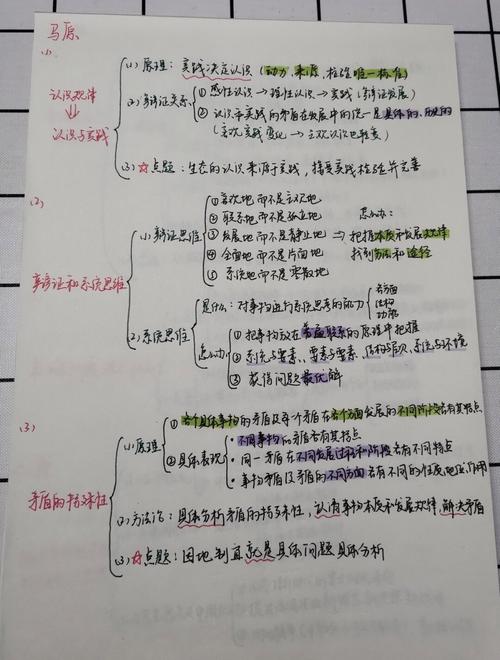 马原
(1)
认识规律
⇓
认识与实践
(1) 原理：实践决定认识（动力、来源、检验唯一标准）
(2) 辩证关系
① 感性认识→理性认识→实践（辩证发展）
② 认识与实践的矛盾在发展中的统一是具体的、历史的
（客观实践变化→主观认识也转变）
(3) ☆点题：生态的认识来源于实践，接受实践检验并完善
(2)
辩证和系统思维
(1) 辩证思维
① 客观地而不是主观地
② 联系地而不是孤立地
③ 发展地而不是静止地
④ 全面地而不是片面地
⑤ 系统地而不是零散地
怎么办：
⇒ 把握本质和发展规律
找到方法和途径
(2) 系统思维
是什么：对事物进行系统思考的能力
多方面
结构
功能
怎么办
① 把事物放在普遍联系的原理中把握
② 系统与要素、要素与要素、结构与层次、系统与环境
③ 获得问题最优解
(3)
矛盾的特殊性
(1) 原理
① 各个具体事物的矛盾及每个矛盾在各个方面发展的不同阶段各有其特点
② 具体表现
· 不同事物的矛盾各有其特点
· 同一矛盾在不同发展过程和阶段各有不同特点
· 事物矛盾及矛盾的不同方面各有不同的性质、地位、作用
(2) 方法论：具体分析矛盾的特殊性，认清事物本质和发展规律，解决矛盾
(3) ☆点题：因地制宜就是具体问题具体分析